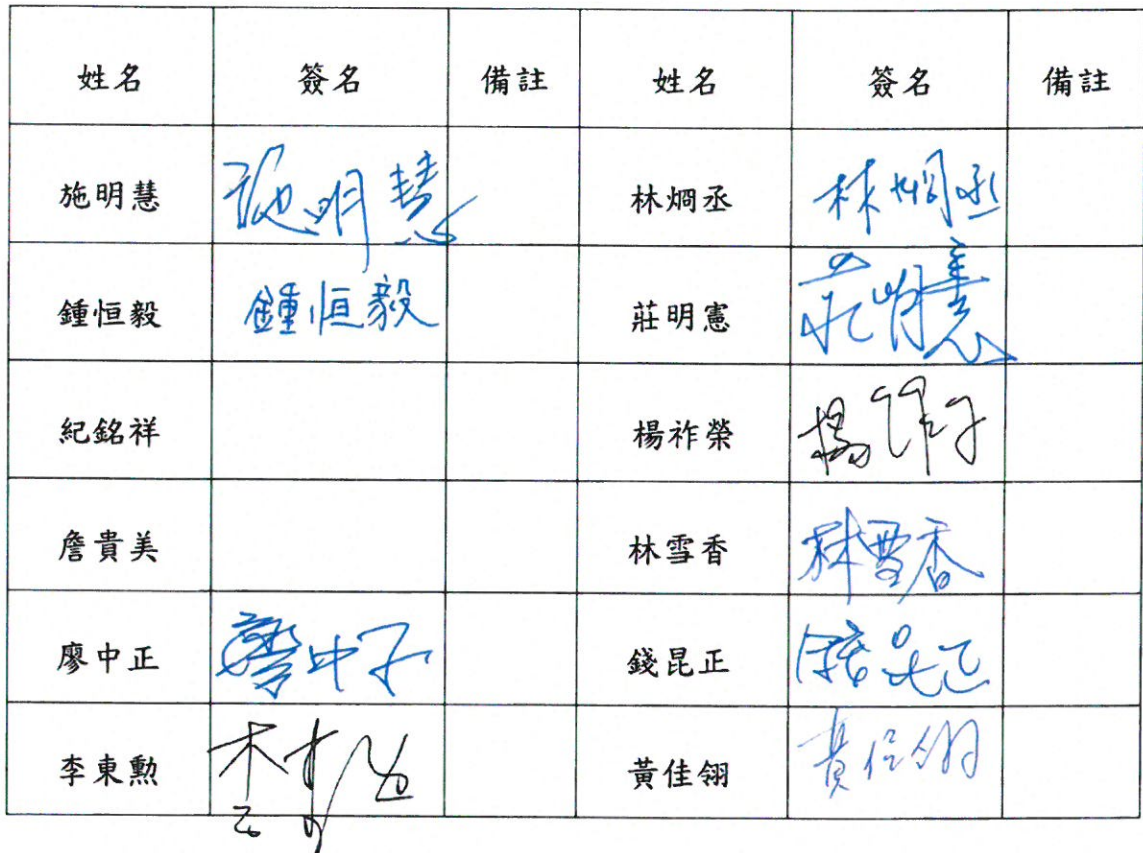 姓名 簽名 備註 姓名 簽名 備註
施明慧 施明慧 林烱丞 林烱丞
鍾恒毅 鍾恒毅 莊明憲 莊明憲
紀銘祥 楊祚榮 楊
詹貴美 林雪香 林雪香
廖中正 廖中正 錢昆正 錢昆正
李東勲 黃佳翎 黃佳翎